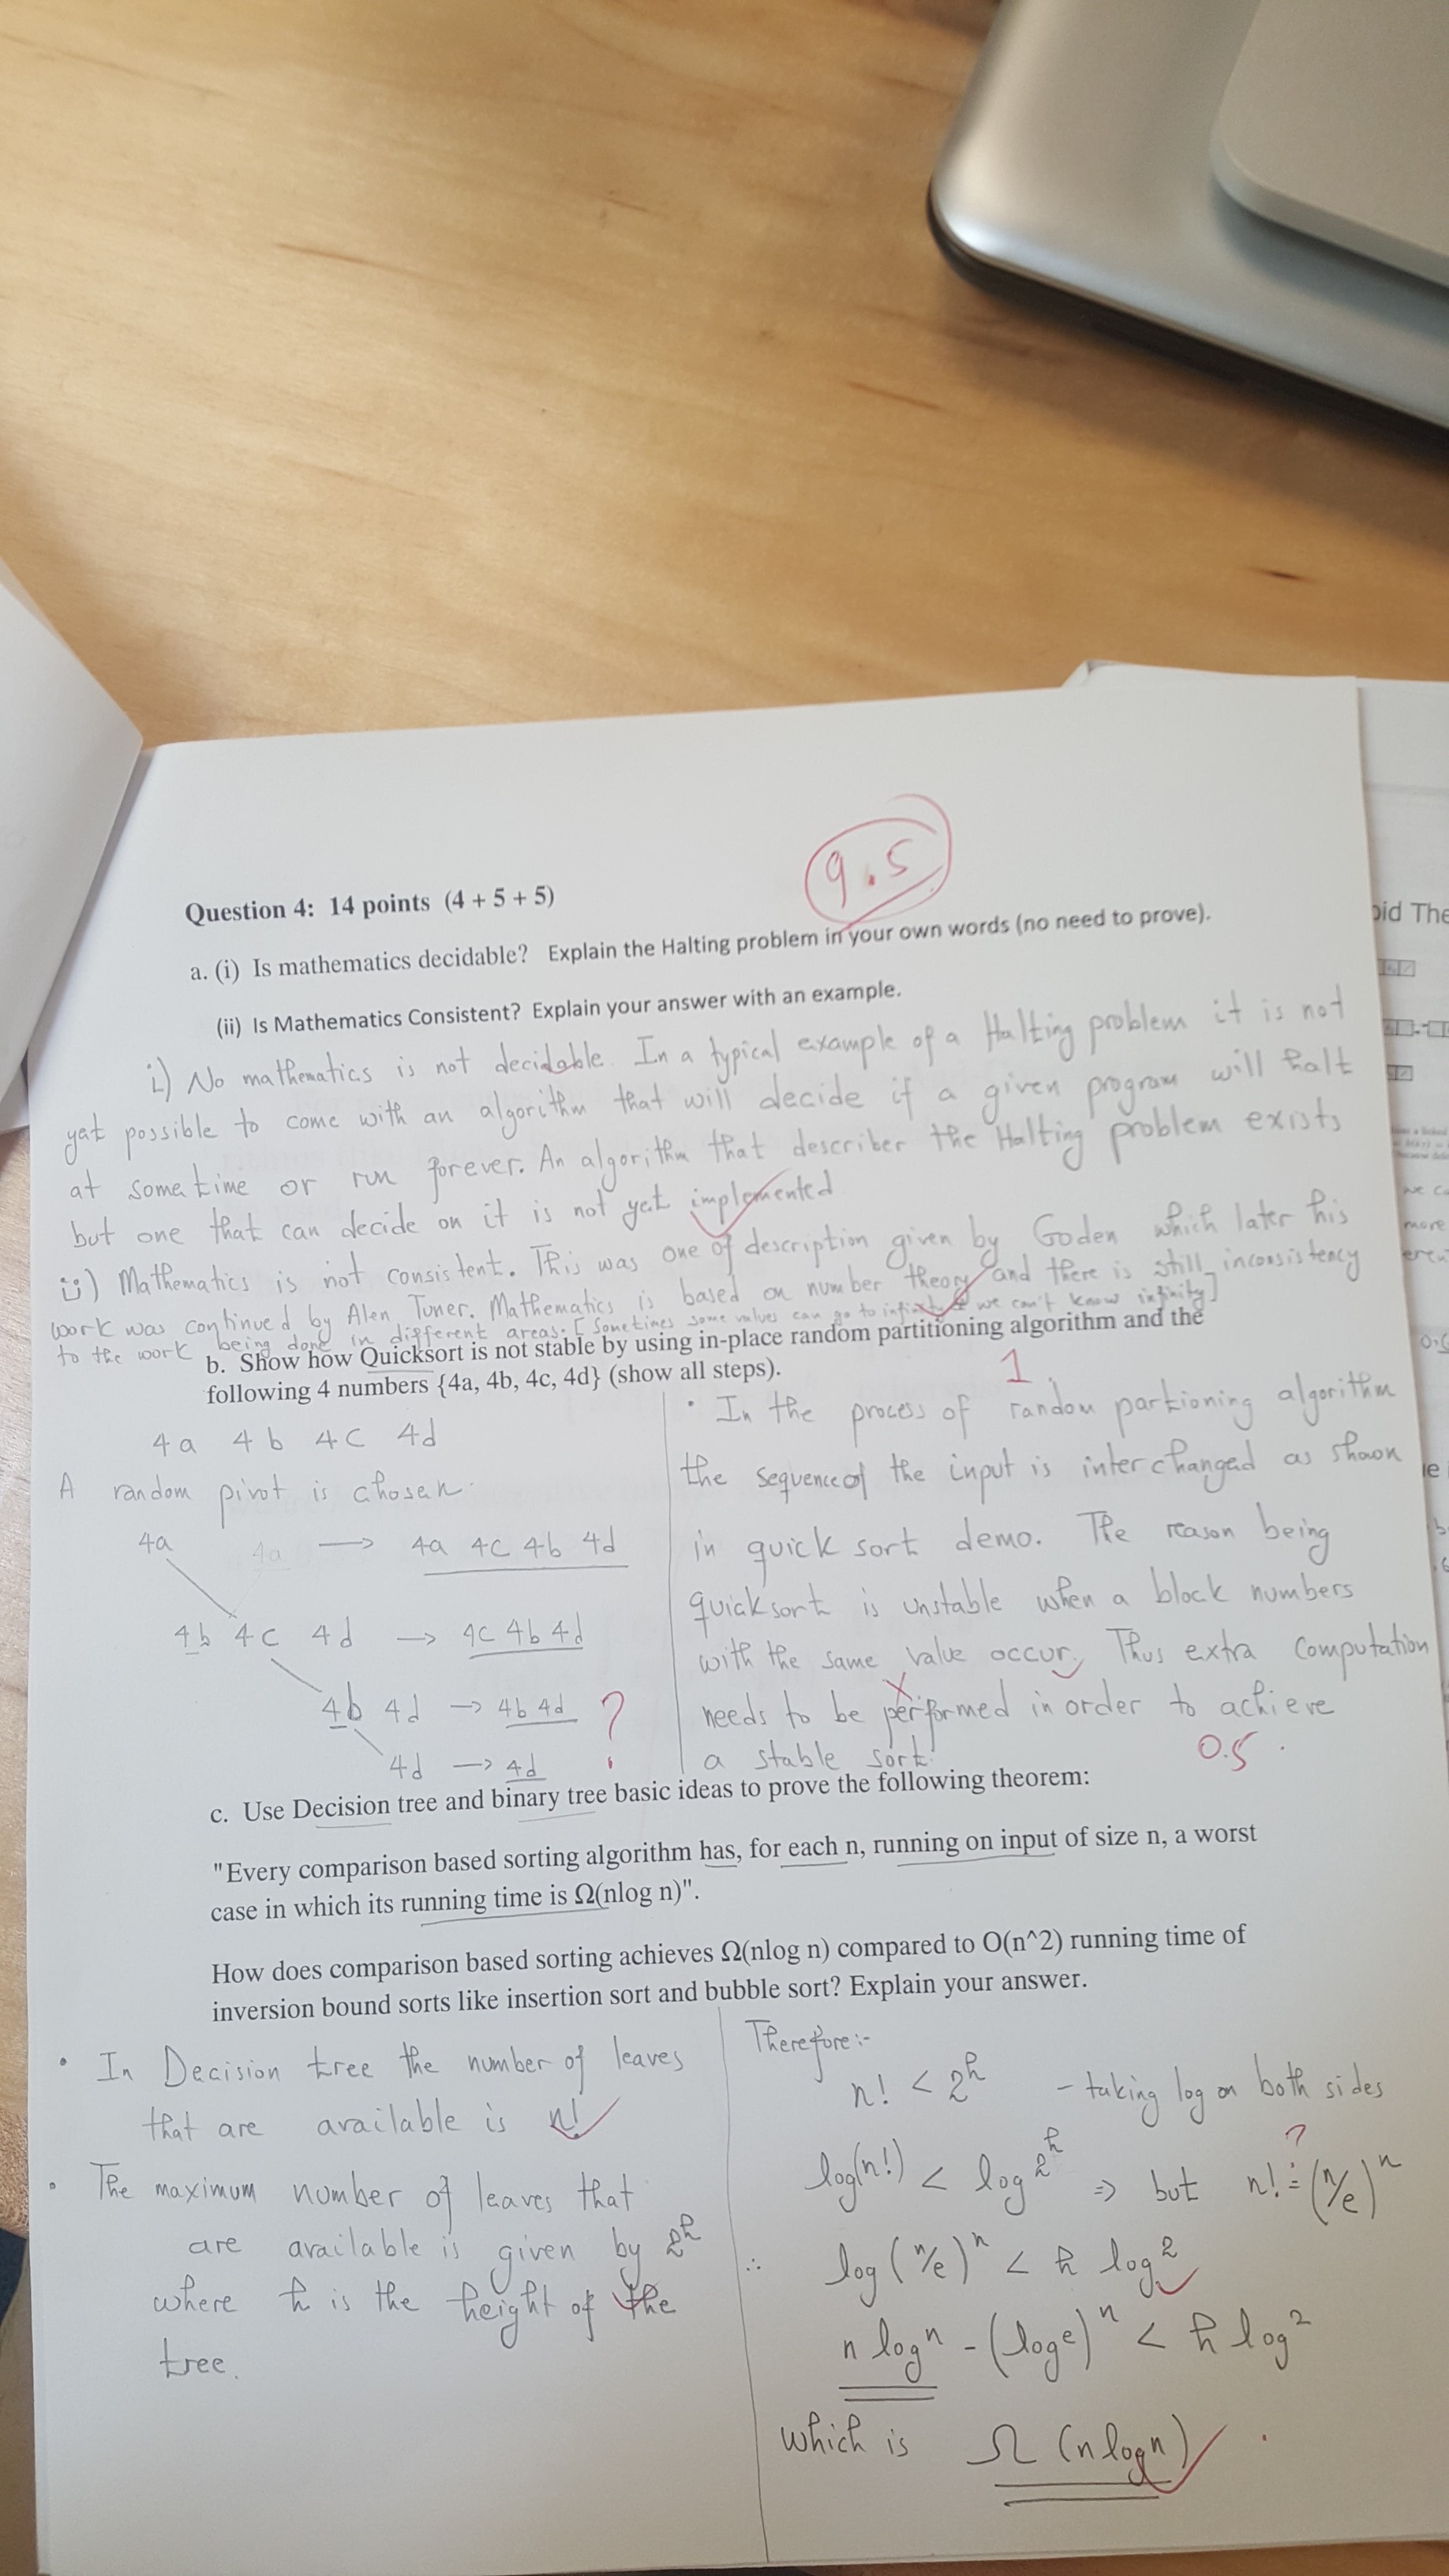 9.5
Question 4: 14 points (4 + 5 + 5)
a. (i) Is mathematics decidable? Explain the Halting problem in your own words (no need to prove).
(ii) Is Mathematics Consistent? Explain your answer with an example.
i) No mathematics is not decidable. In a typical example of a Halting problem it is not
yet possible to come with an algorithm that will decide if a given program will halt
at sometime or run forever. An algorithm that describer the Halting problem exists
but one that can decide on it is not yet implemented
ii) Mathematics is not consistent. This was one of description given by Goden which later his
work was continued by Alen Tuner. Mathematics is based on number theory and there is still inconsistency
to the work being done in different areas. [Sometimes some values can go to infinity & we can't know infinity]
b. Show how Quicksort is not stable by using in-place random partitioning algorithm and the
following 4 numbers {4a, 4b, 4c, 4d} (show all steps).
1
4a 4b 4c 4d
A random pivot is chosen.
4a 4a → 4a 4c 4b 4d
4b 4c 4d → 4c 4b 4d
4b 4d → 4b 4d ?
4d → 4d
· In the process of random partioning algorithm
the sequence of the input is interchanged as shown
in quick sort demo. The reason being
quicksort is unstable when a block numbers
with the same value occur. Thus extra computation
needs to be performed in order to achieve
a stable sort.
0.5
c. Use Decision tree and binary tree basic ideas to prove the following theorem:
"Every comparison based sorting algorithm has, for each n, running on input of size n, a worst
case in which its running time is Ω(nlog n)".
How does comparison based sorting achieves Ω(nlog n) compared to O(n^2) running time of
inversion bound sorts like insertion sort and bubble sort? Explain your answer.
· In Decision tree the number of leaves
that are available is n!
· The maximum number of leaves that
are available is given by 2^h
where h is the height of the
tree.
Therefore:-
n! < 2^h - taking log on both sides
?
log(n!) < log 2^h ⇒ but n! = (n/e)^n
∴ log (n/e)^n < h log 2
n log n - (log e)^n < h log 2
which is Ω (n log n)